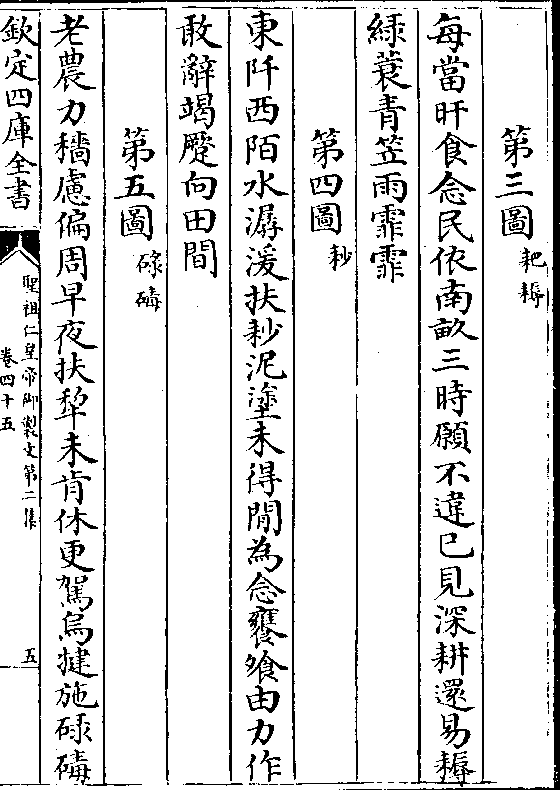 第三圖 耙耨
每當旰食念民依南畝三時願不違已見深耕還易耨
綠蓑青笠雨霏霏
第四圖 耖
東阡西陌水潺湲扶耖泥塗未得閒為念饔飱由力作
敢辭竭蹷向田間
第五圖 碌碡
老農力穡慮偏周早夜扶犂未肯休更駕烏犍施碌碡
欽定四庫全書
聖祖仁皇帝御製文第二集
卷四十五
五